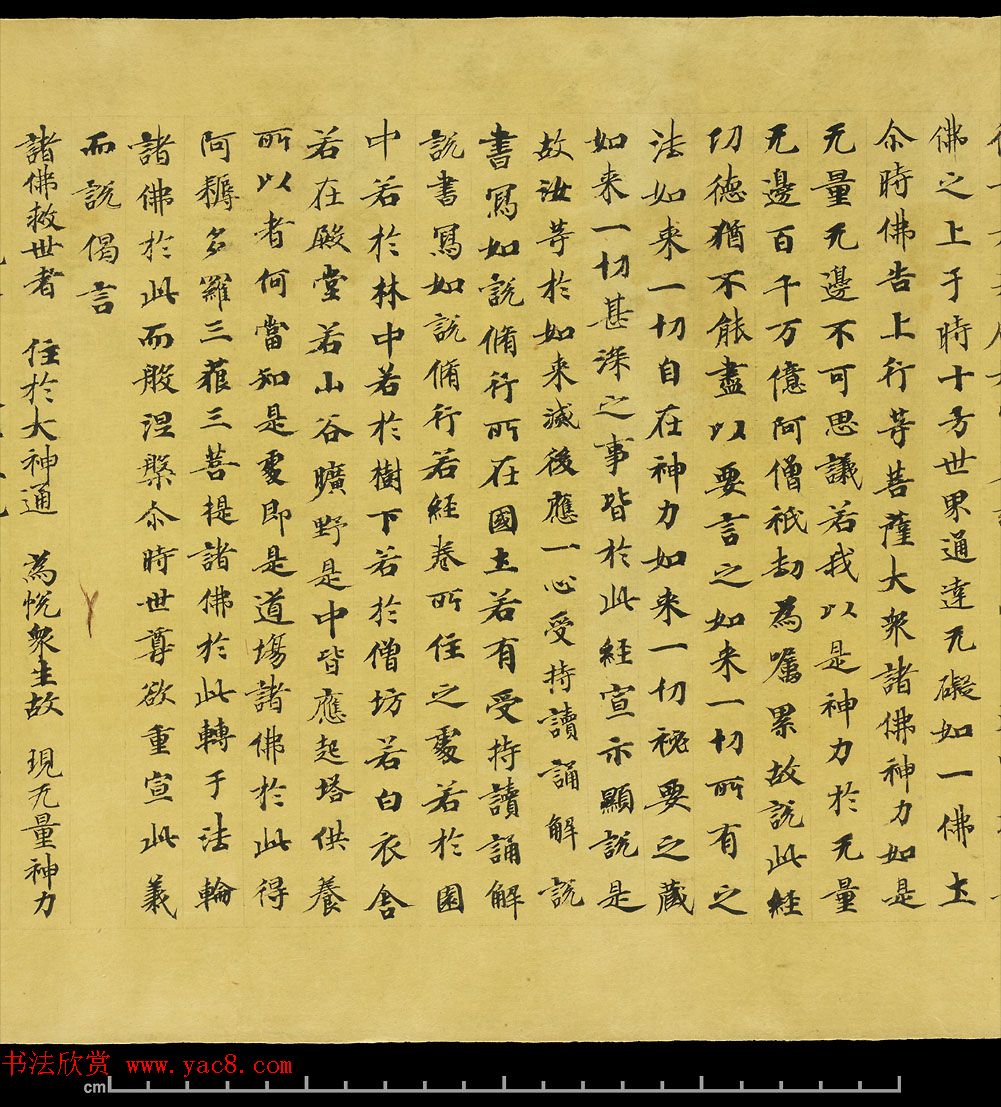 佛之上于時十方世界通達无礙如一佛土
尒時佛告上行等菩薩大衆諸佛神力如是
无量无邊不可思議若我以是神力於无量
无邊百千万億阿僧祇劫為囑累故說此經
功德猶不能盡以要言之如来一切所有之
法如来一切自在神力如来一切祕要之蔵
如来一切甚深之事皆於此經宣示顯說是
故汝等於如来滅後應一心受持讀誦解說
書寫如說脩行所在國土若有受持讀誦解
說書寫如說脩行若經卷所住之處若於園
中若於林中若於樹下若於僧坊若白衣舎
若在殿堂若山谷曠野是中皆應起塔供養
所以者何當知是處即是道場諸佛於此得
阿耨多羅三藐三菩提諸佛於此轉于法輪
諸佛於此而般涅槃尒時世尊欲重宣此義
而說偈言
諸佛救世者 住於大神通 為悅衆生故 現无量神力
书法欣赏 www.yac8.com
cm